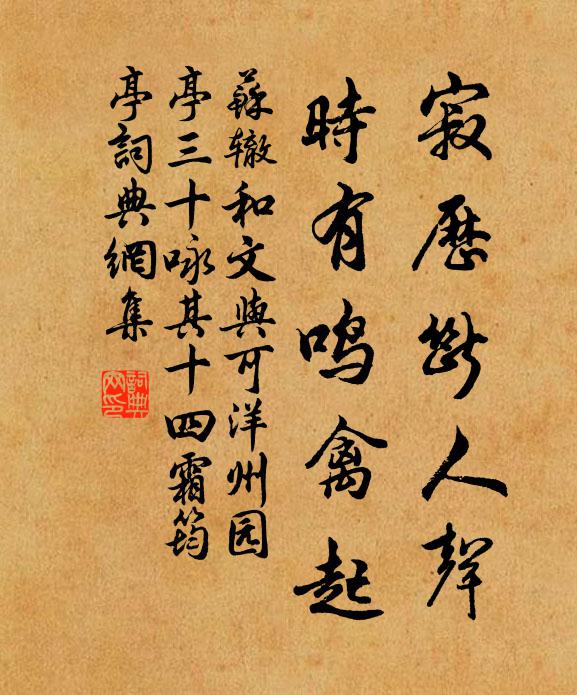 寂歷斷人聲
時有鳴禽起
蘇辙和文與可洋州园
亭三十咏其十四霜筠
亭詞典網集
詞典
网印